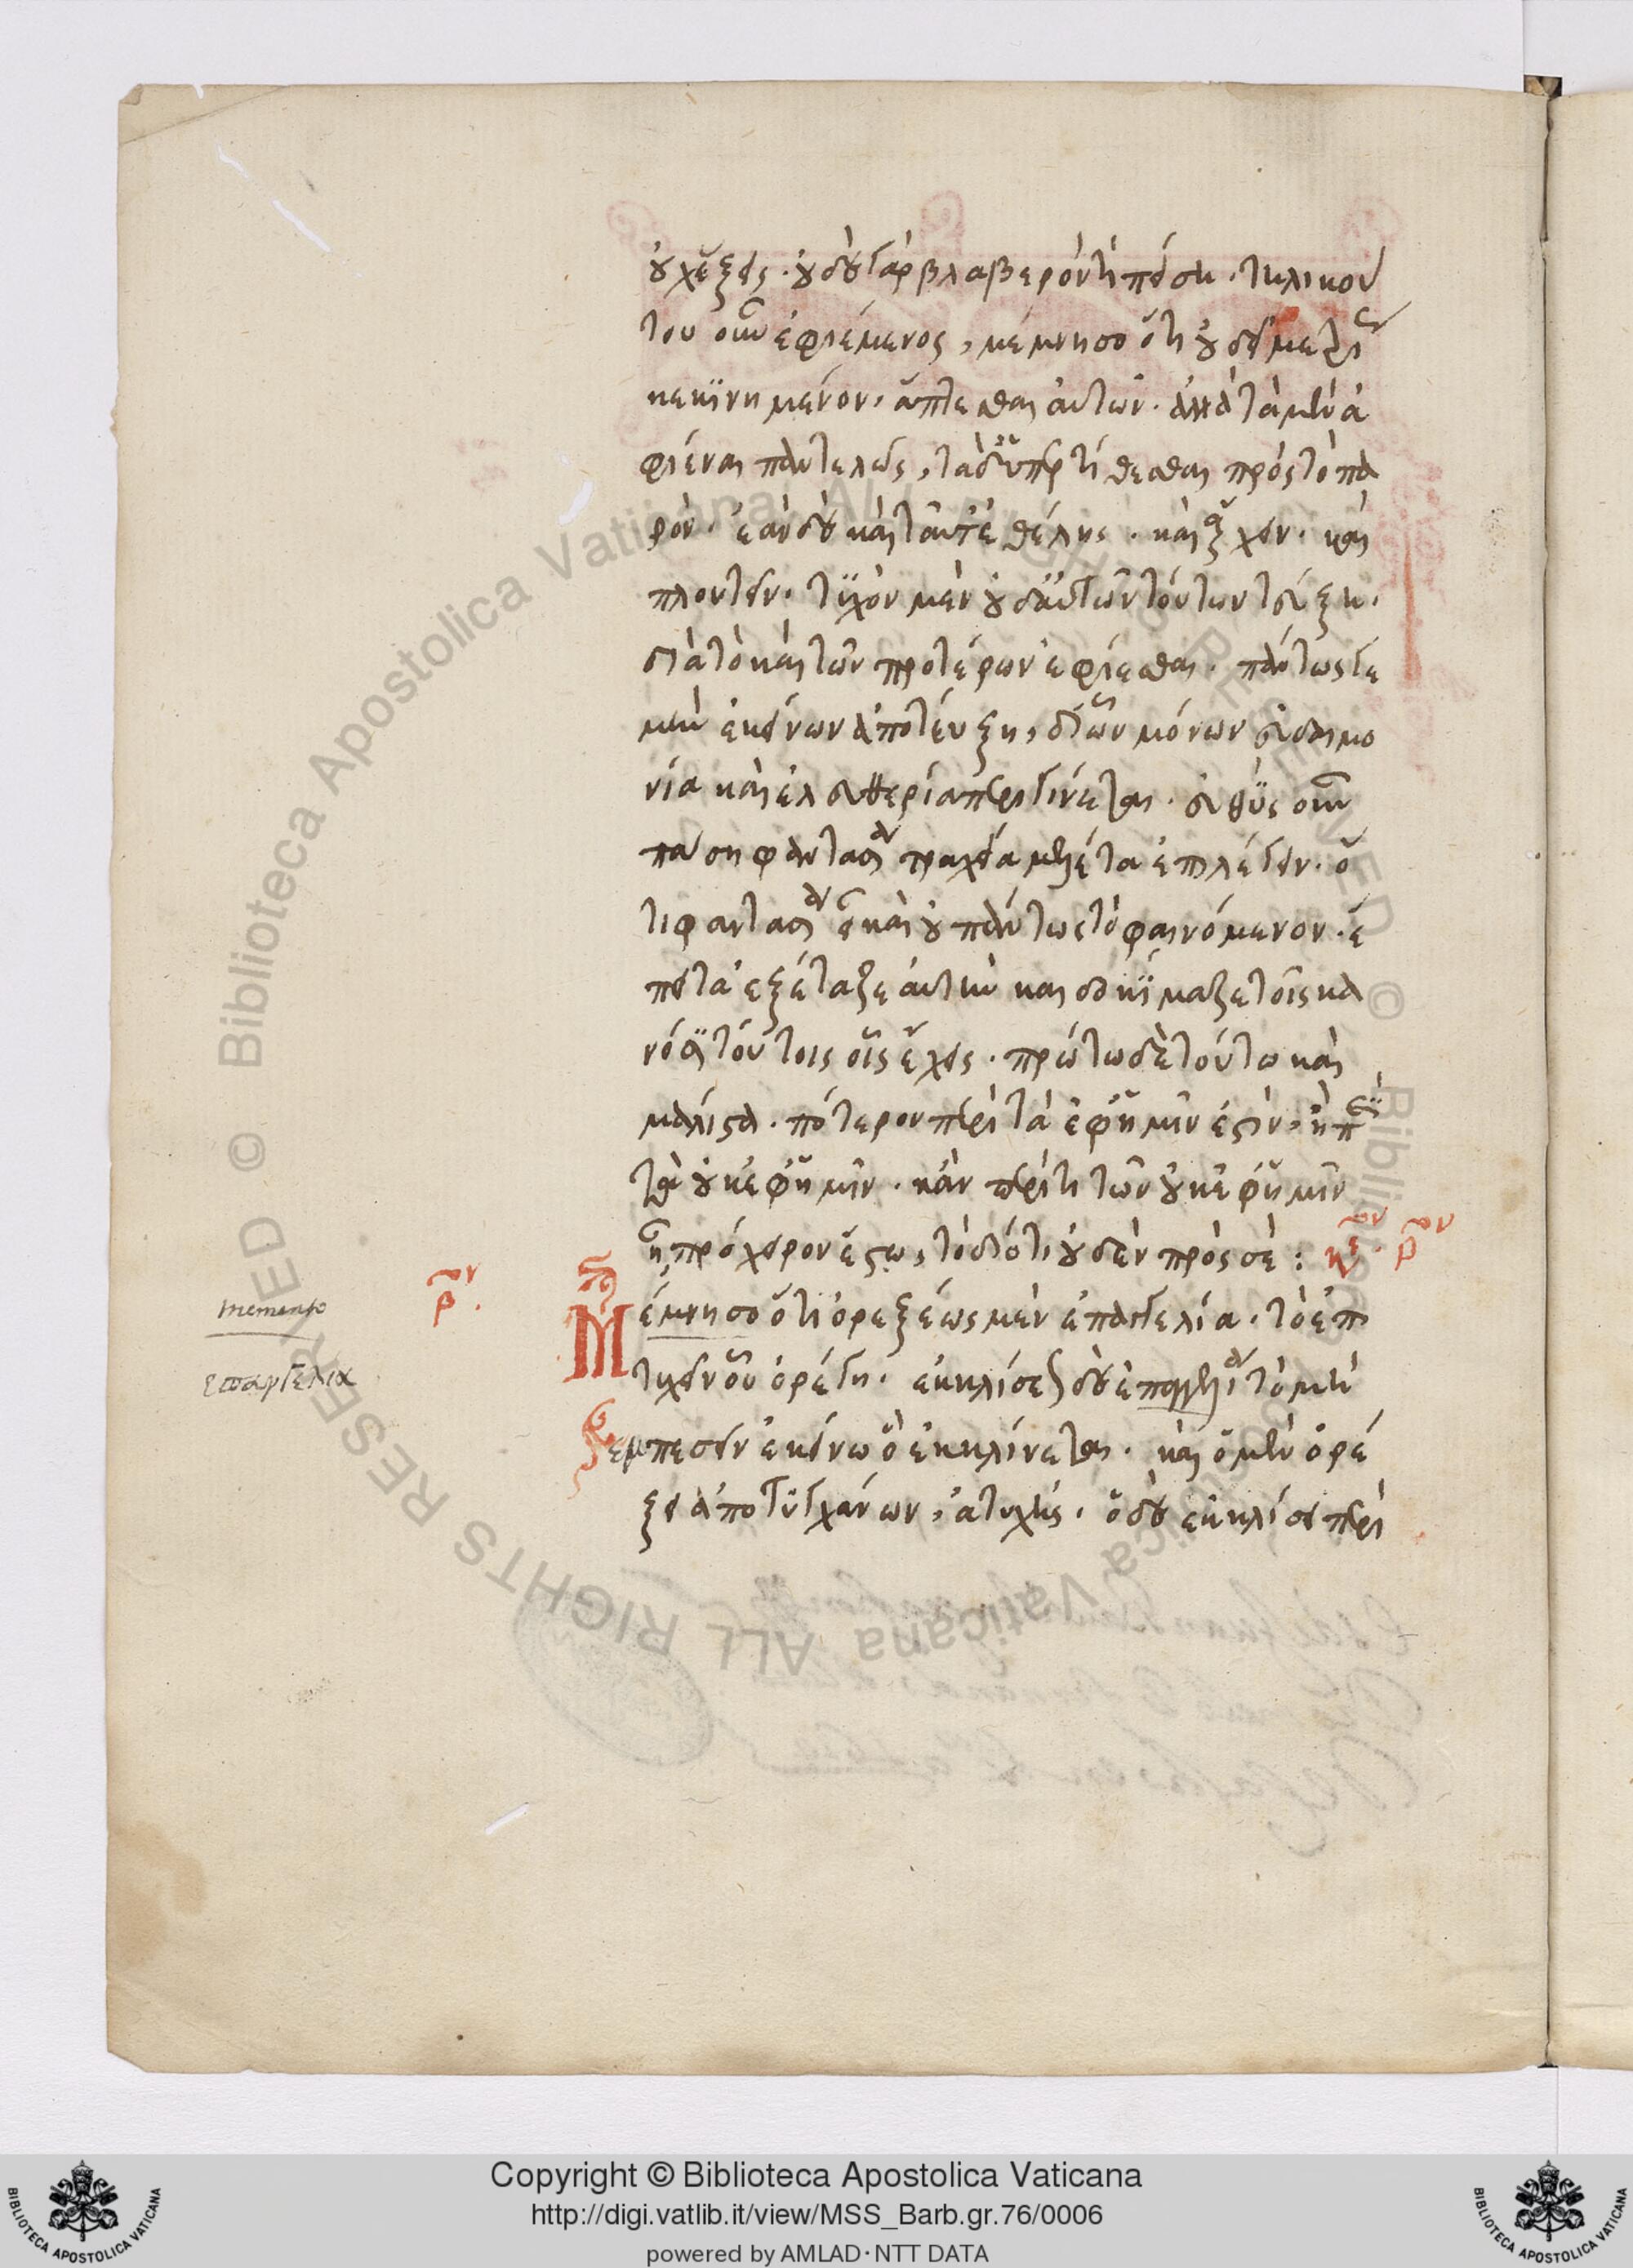 οὐχ ἕξεις· οὐδὲ γὰρ βλαβερόν τι πείσῃ· τηλικού
των οὖν ἐφιέμενος, μέμνησο ὅτι οὐ δεῖ μετρίως
κεκινημένον, ἅπτεσθαι αὐτῶν· ἀλλὰ τὰ μὲν ἀ
φιέναι παντελῶς, τὰ δ' ὑπερτίθεσθαι πρὸς τὸ πα
ρόν· ἐὰν δὲ καὶ ταῦτ' ἐθέλῃς· καὶ ἄρχειν· καὶ
πλουτεῖν· τυχὸν μὲν οὐδ' αὐτῶν τούτων τεύξῃ·
διὰ τὸ καὶ τῶν προτέρων ἐφίεσθαι· πάντως γε
μὴν ἐκείνων ἀποτεύξῃ, δι' ὧν μόνων εὐδαιμο
νία καὶ ἐλευθερία περιγίνεται· εὐθὺς οὖν
πάσῃ φαντασίᾳ τραχείᾳ μελέτα ἐπιλέγειν· ὅ
τι φαντασία εἶ καὶ οὐ πάντως τὸ φαινόμενον· ἔ
πειτα ἐξέταζε αὐτὴν καὶ δοκίμαζε τοῖς κα
νόσι τούτοις οἷς ἔχεις· πρώτῳ δὲ τούτῳ καὶ
μάλιστα· πότερον περὶ τὰ ἐφ' ἡμῖν ἐστιν, ἢ περὶ
τὰ οὐκ ἐφ' ἡμῖν· κἂν περί τι τῶν οὐκ ἐφ' ἡμῖν
ᾖ πρόχειρον ἔστω, τὸ διότι οὐδὲν πρὸς σέ:
Μέμνησο ὅτι ὀρέξεως μὲν ἐπαγγελία· τὸ ἐπι
τυχεῖν οὗ ὀρέγῃ· ἐκκλίσεως δὲ ἐπαγγελία τὸ μὴ
περιπεσεῖν ἐκείνῳ ὃ ἐκκλίνεται· καὶ ὁ μὲν ὀρέ
ξει ἀποτυγχάνων, ἀτυχής· ὁ δὲ ἐκκλίσει περι
memento
επαγγελια
Copyright © Biblioteca Apostolica Vaticana
http://digi.vatlib.it/view/MSS_Barb.gr.76/0006
powered by AMLAD·NTT DATA
BIBLIOTECA APOSTOLICA VATICANA
BIBLIOTECA APOSTOLICA VATICANA
© Biblioteca Apostolica Vaticana ALL RIGHTS RESERVED
© Biblioteca Apostolica Vaticana ALL RIGHTS RESERVED